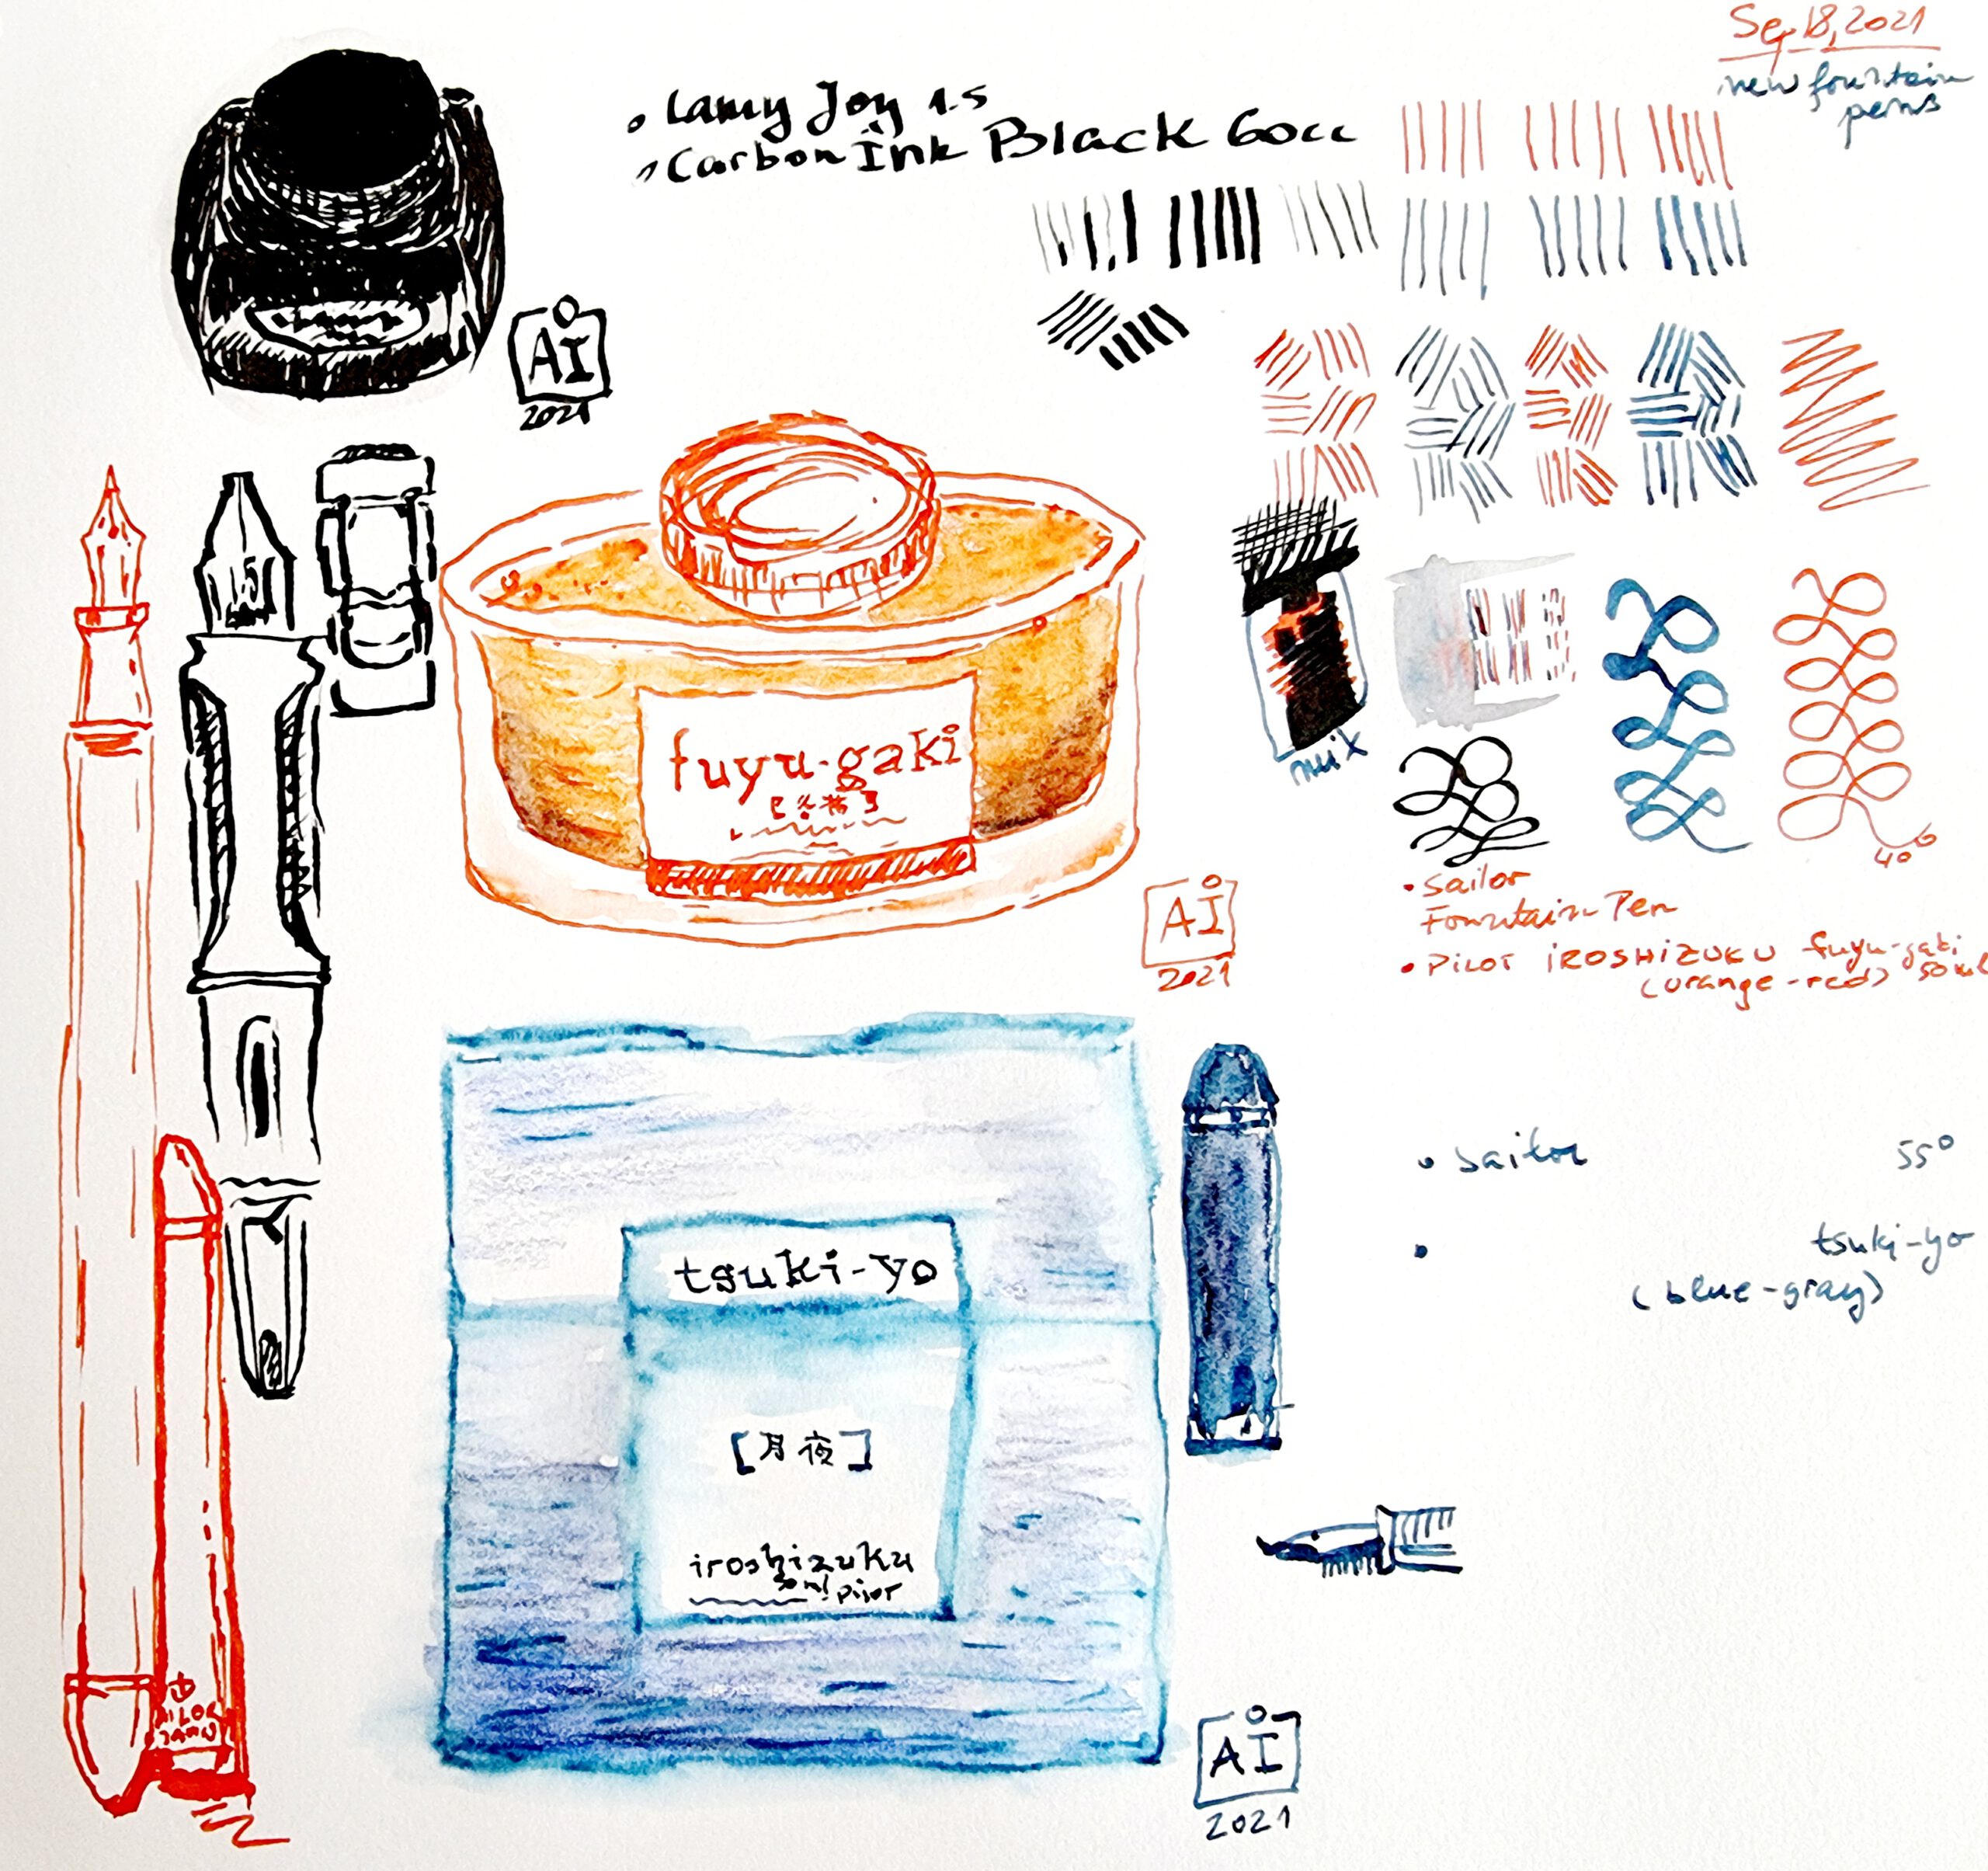 Sep 18, 2021
new fountain
pens
• Lamy Joy 1.5
• Carbon Ink Black 60cc
AI
2021
1.5
fuyu-gaki
mix
40°
• Sailor
Fountain Pen
• PILOT IROSHIZUKU fuyu-gaki
(orange-red) 50ml
AI
2021
• Sailor 55°
• tsuki-yo
(blue-gray)
tsuki-yo
[月夜]
iroshizuku
50ml pilot
AI
2021